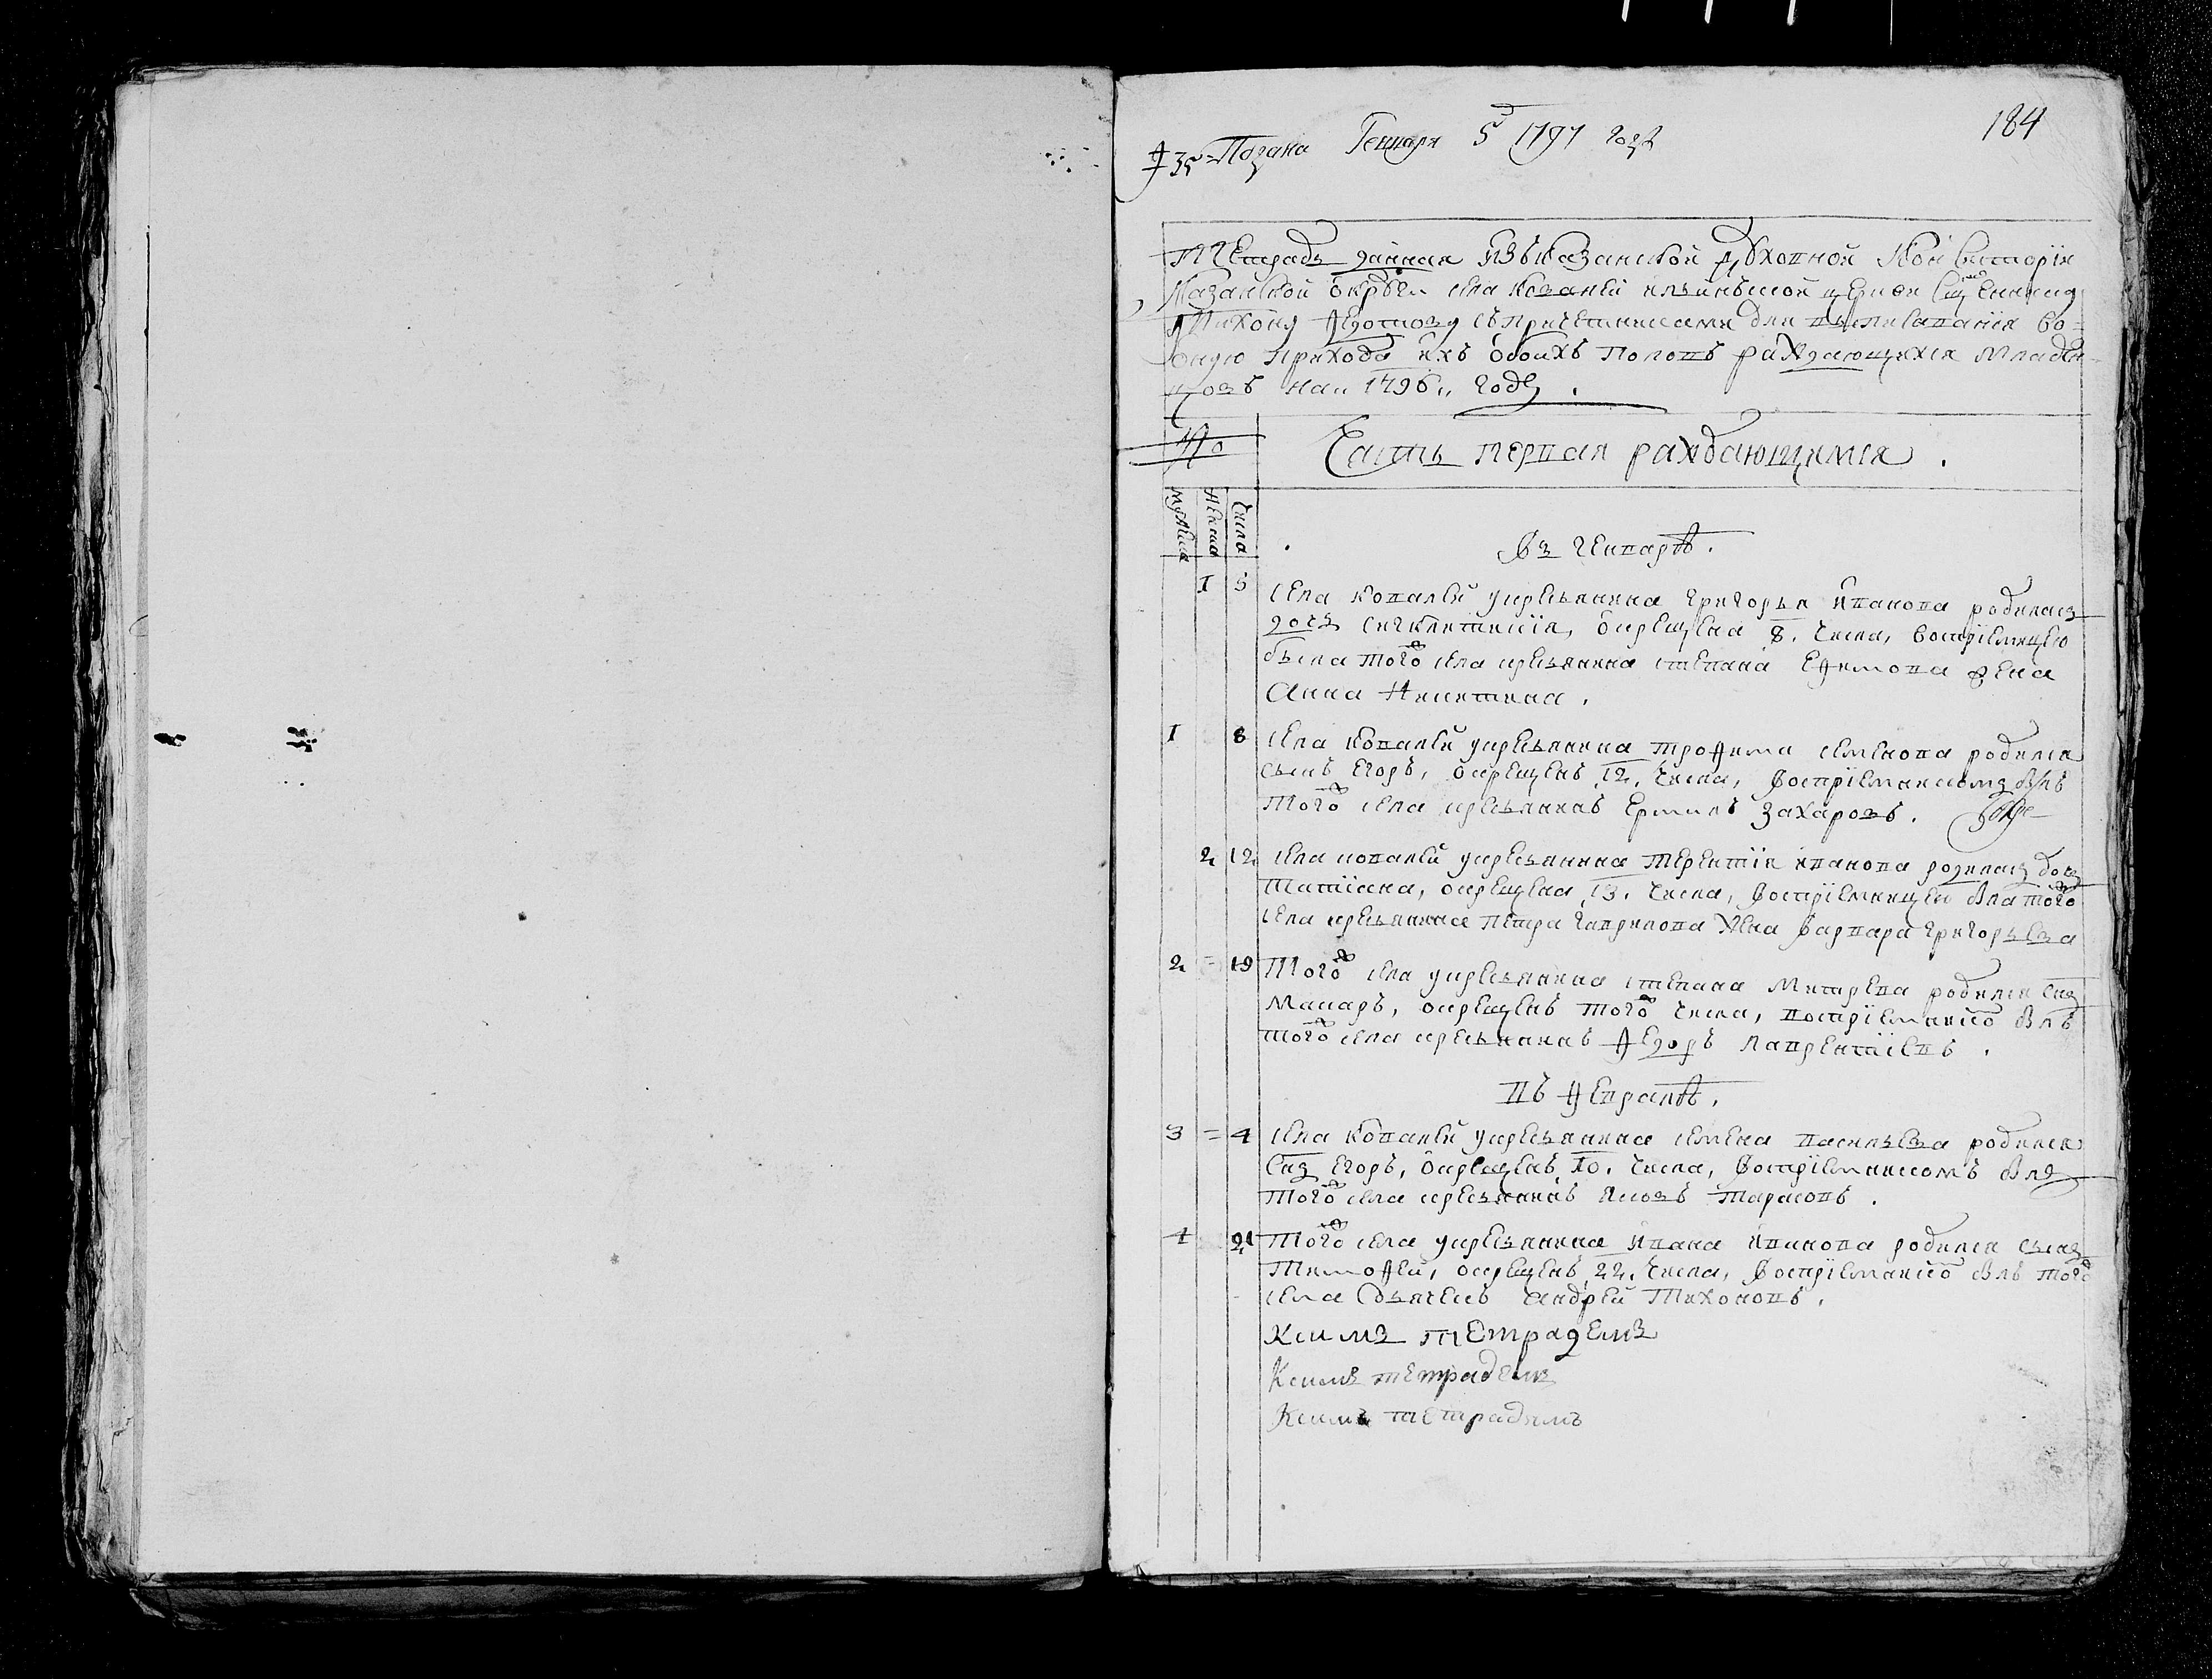 184
Подана Генваря 5 1797 года
Тетрадь данная изъ Казанской Духовной Консисторіи
Казанской округи села Ковалей ильинъской церкви Священнику
Тихону Федотову съ причетниками для въписаванія во
оную прихода ихъ обоихъ половъ раждающихся младен-
цовъ на 1796 годъ.
No Часть первая раждающимся.
мужска женска числа
Въ генварѣ.
1 5 села Ковалей у крестьянина григорья иванова родилась
дочь сигклитикія, окрещена 8. числа, воспріемницею
была того села крестьянина степана ефимова жена
анна никитина.
1 8 села Ковалей у крестьянина трофима семенова родился
сынъ егоръ, окрещенъ 12. числа, воспріемникомъ былъ
того села крестьянинъ ермилъ захаровъ.
2 12 села ковалей у крестьянина терентія иванова родилась дочь
татіана, окрещена 13. числа, воспріемницею была того
села крестьянина петра гаврилова жена варвара григорьева
2 = 19 Того села у крестьянина степана митрева родился сынъ
макаръ, окрещенъ того числа, воспріемнико былъ
того села крестьянинъ федоръ лаврентіевъ.
Въ февралѣ.
3 = 4 села Ковалей у крестьянина семена васильева родился
сынъ егоръ, окрещенъ 10. числа, воспріемникомъ былъ
того села крестьянинъ яковъ тарасовъ.
4 21 того села у крестьянина ивана иванова родился сынъ
тимофей, окрещенъ 22. числа, воспріемнико былъ того
села дьячекъ андрей тихоновъ.
К симъ тетрадемъ
К симъ тетрадемъ
К симъ тетрадимъ